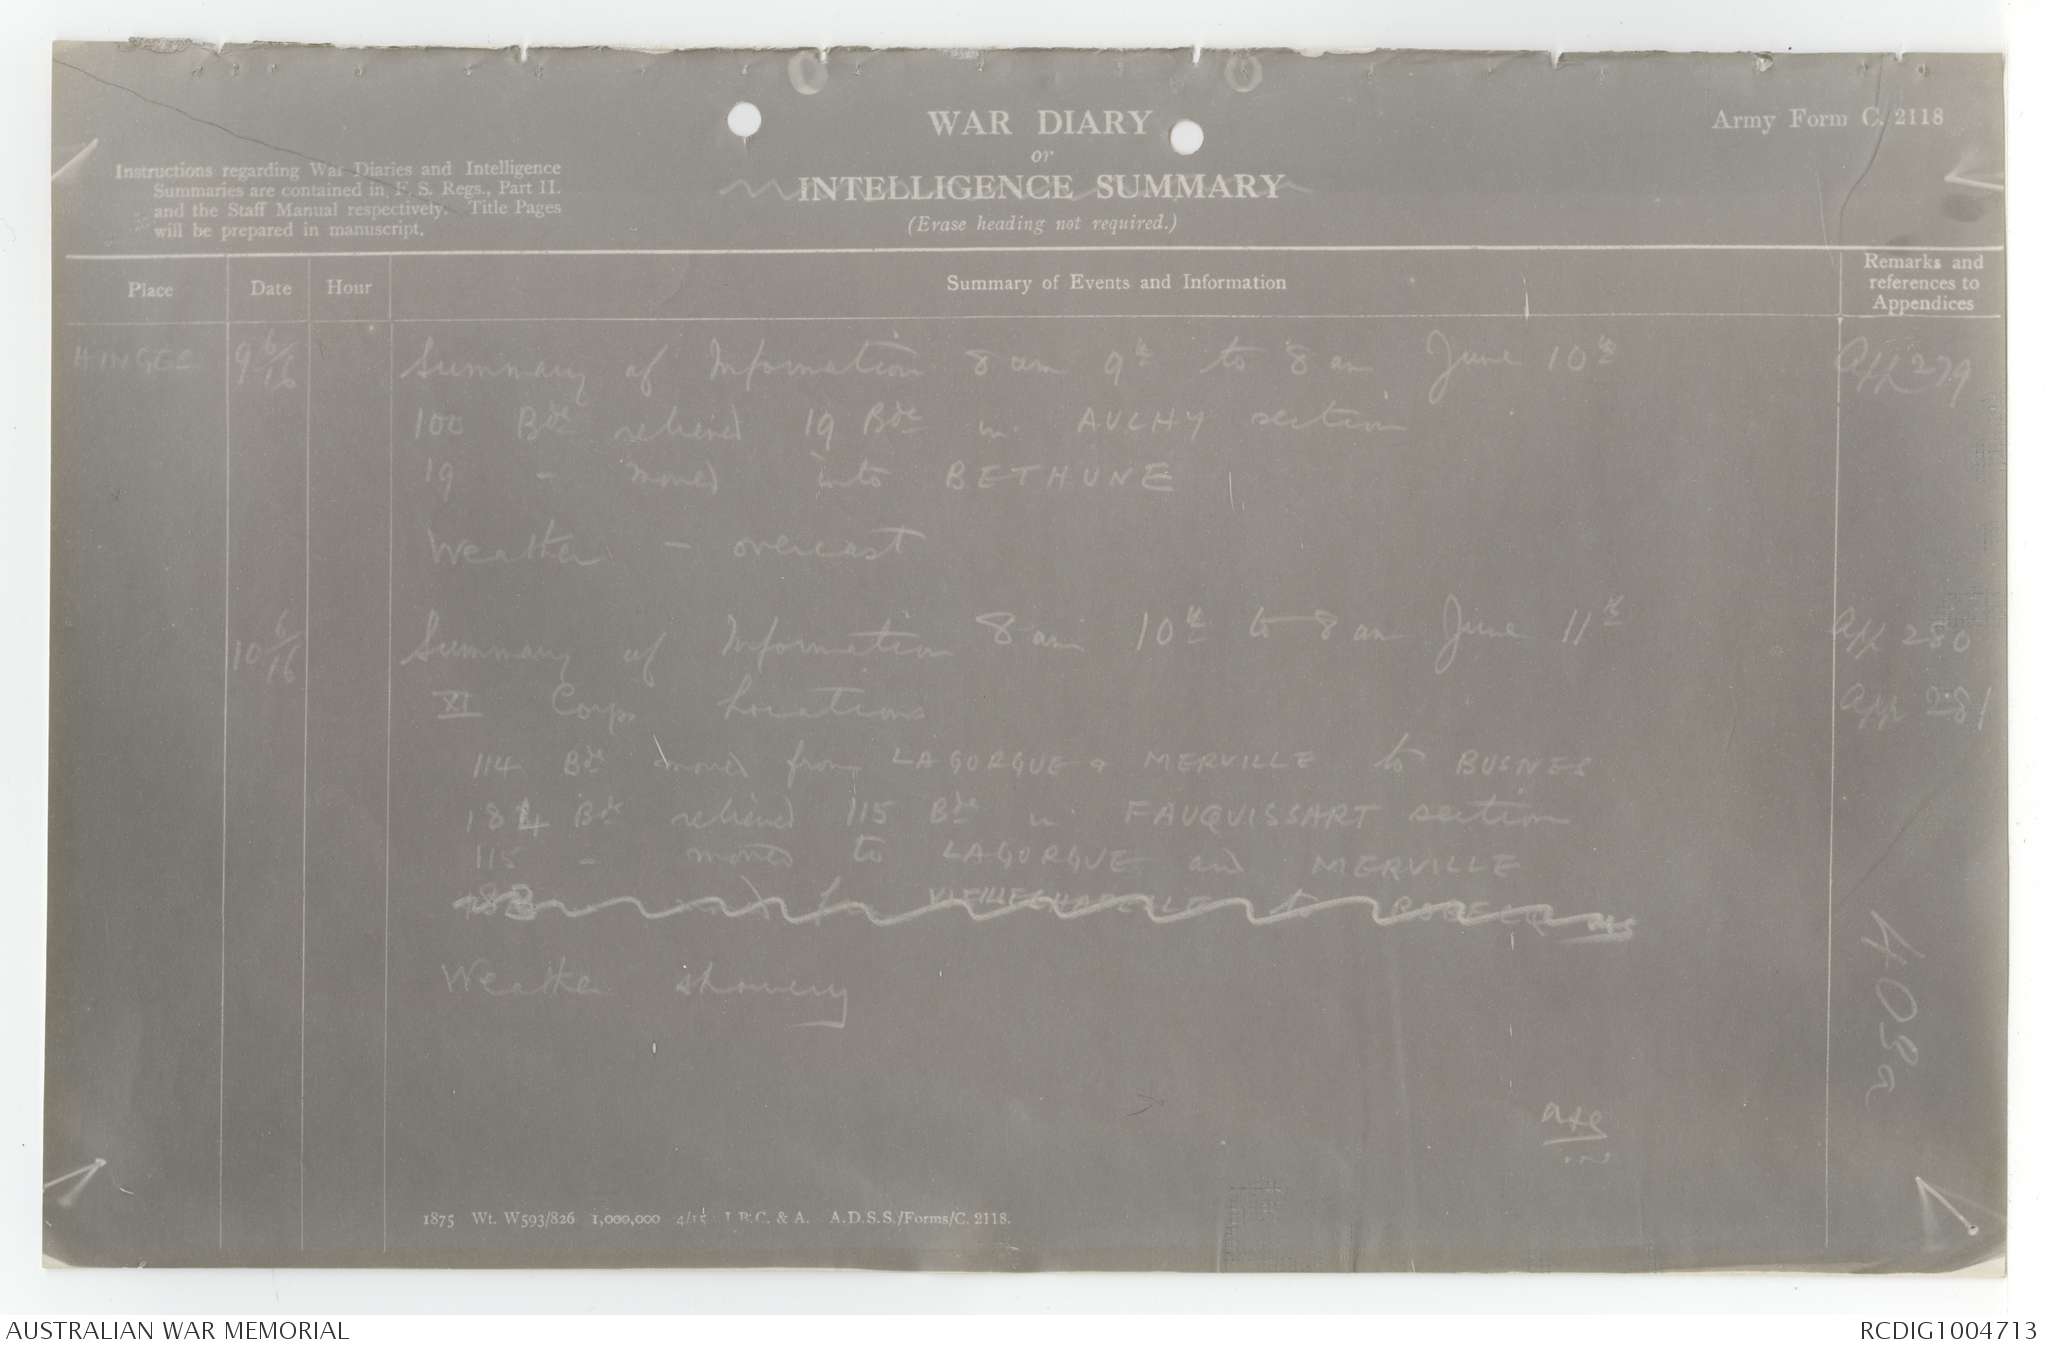 WAR DIARY
or
INTELLIGENCE SUMMARY
(Erase heading not required.)
Army Form C. 2118
Instructions regarding War Diaries and Intelligence
Summaries are contained in F. S. Regs., Part II.
and the Staff Manual respectively. Title Pages
will be prepared in manuscript.
Place Date Hour Summary of Events and Information Remarks and references to Appendices
HINGES 9 6/16 Summary of Information 8 am 9th to 8 am June 10th App 279
100 Bde relieved 19 Bde in AUCHY section
19 - moved into BETHUNE
Weather - overcast
10 6/16 Summary of Information 8 am 10th to 8 am June 11th App 280
XI Corps Locations App 281
114 Bde moved from LAGORGUE & MERVILLE to BUSNES
184 Bde relieved 115 Bde in FAUQUISSART section
115 - moved to LAGORGUE and MERVILLE
183 VIEILLE CHAPELLE to
Weather showery
403a
1875 Wt. W593/826 1,000,000 4/15 J.B.C. & A. A.D.S.S./Forms/C. 2118.
AUSTRALIAN WAR MEMORIAL
RCDIG1004713